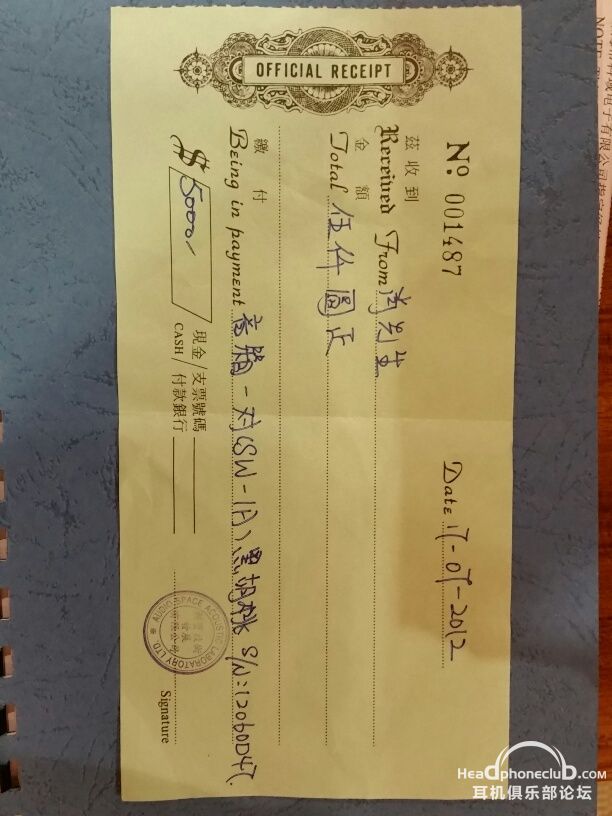 OFFICIAL RECEIPT
Nº 001487
Date 17-07-2012
茲收到
Received From 先生
金額
Total 伍仟圓正
繳付
Being in payment 音箱一对(SW-1A)、黑胡桃 S/N:1206004
$ 5000/
現金/支票號碼
CASH/付款銀行
AUDIO SPACE ACOUSTIC LABORATORY LTD.
Signature
NOTE
電子有限公司
HeadphoneClub.com
耳机俱乐部论坛